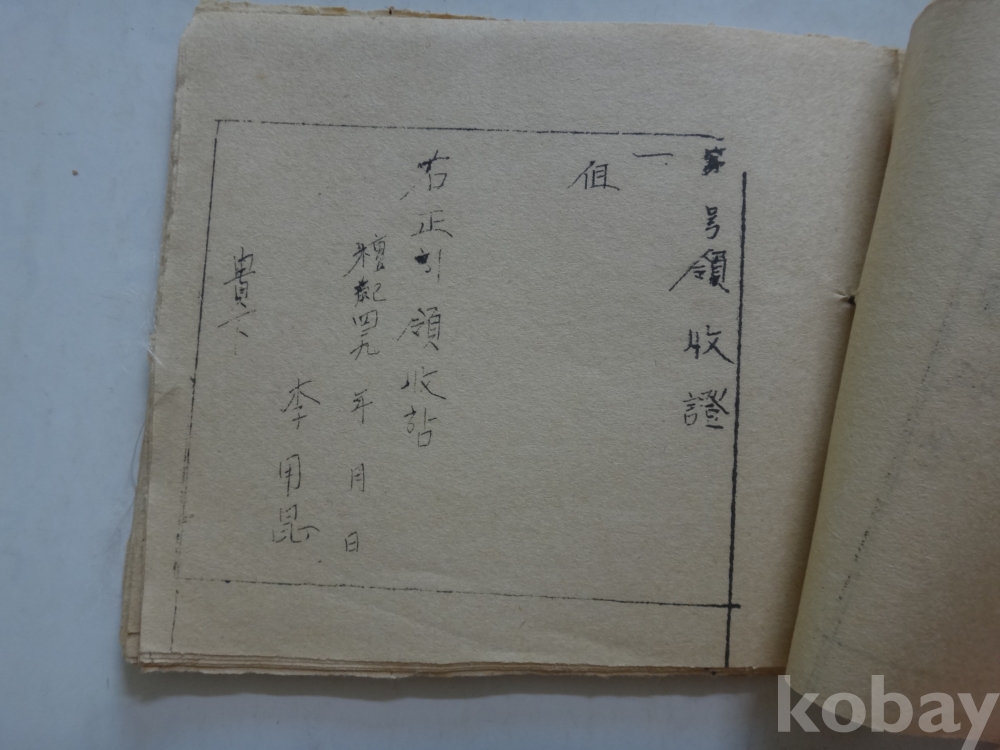 第 号領收證
一
但
右正引領收
檀紀四二九 年 月 日
李用昆
貴下
kobay